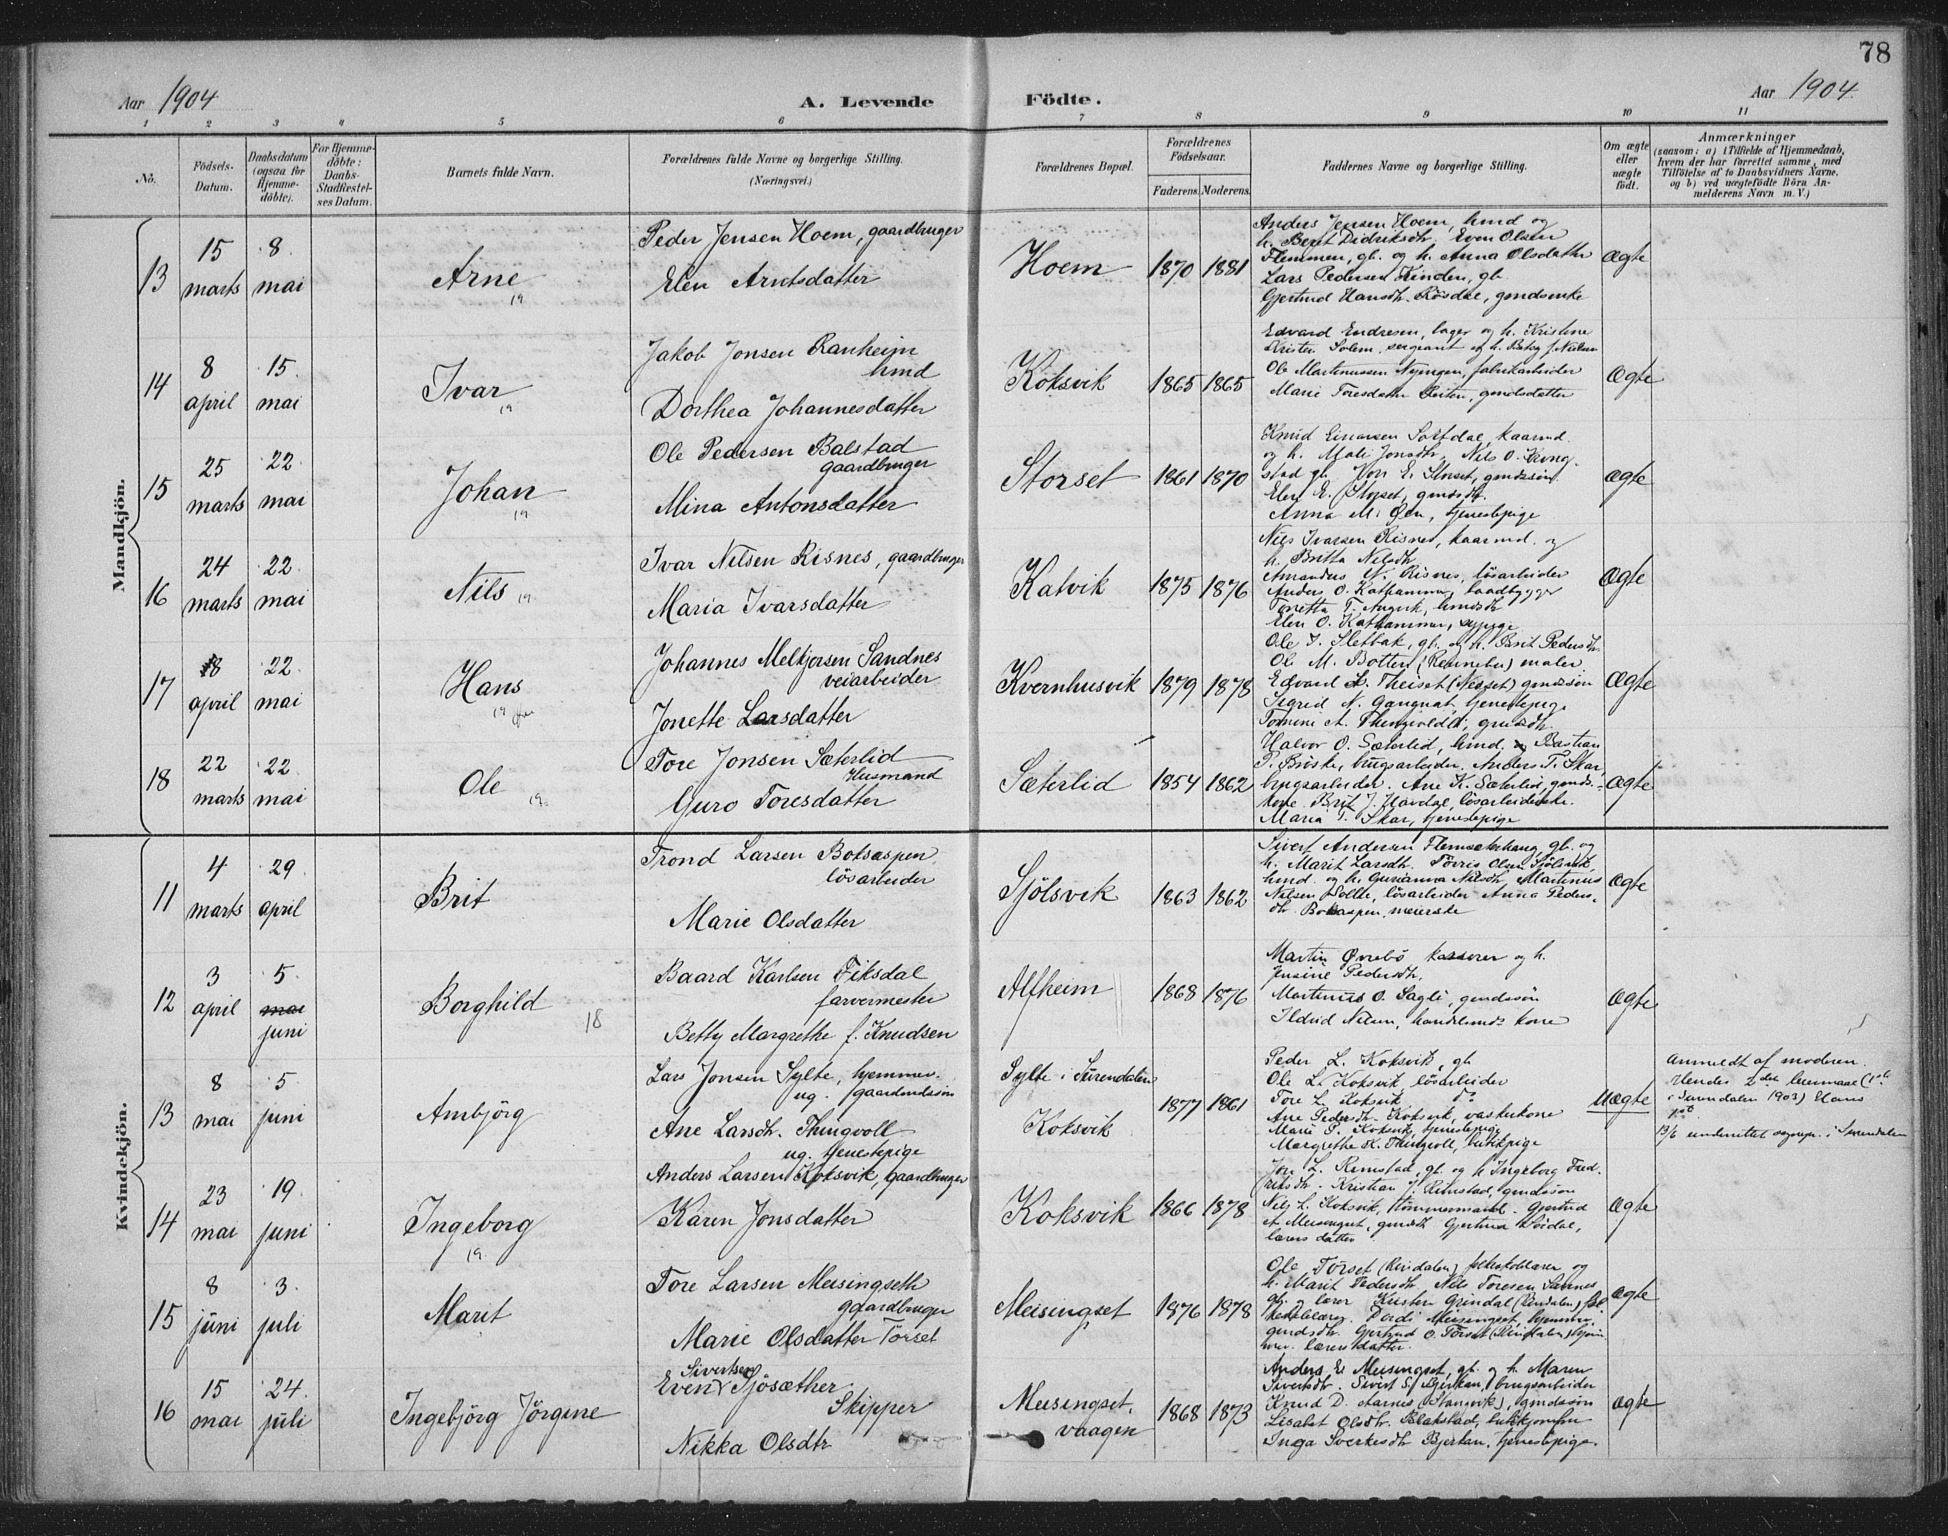 78
Aar 1904
A. Levende Födte.
Aar 1904.
1 2 3 4 5 6 7 8 9 10 11
No.
Födsels-Datum.
Daabsdatum (ogsaa for Hjemme-döbte).
For Hjemme-döbte: Daabs-Stadfæstel-ses Datum.
Barnets fulde Navn.
Forældrenes fulde Navne og borgerlige Stilling. (Næringsvei.)
Forældrenes Bopæl.
Forældrenes Födselsaar.
Faderens. Moderens.
Faddernes Navne og borgerlige Stilling.
Om ægte eller uægte födt.
Anmærkninger
(saasom: a) i Tilfælde af Hjemmedaab, hvem der har forrettet samme, med Tilföielse af to Daabsvidners Navne, og b) ved uægtefödte Börn An-melderens Navn m. V.)
Mandkjön.
13
15 marts
8. mai
Arne
19
Peder Jensen Hoem, gaardbruger
Elen Arntsdatter
Hoem
1870 1881
Anders Jensen Hoem, hmd og
h. Beret Didriksdtr. Even Olsen
Flemmen, gb. og h. Anna Olsdatter
Lars Pedersen Hinden, gb.
Gjertrud Hansdtr. Rösdal, gmdsenke
Ægte
14
8 april
15. mai
Ivar
19
Jakob Jonsen Ranheim
hmd
Dorthea Johannesdatter
Koksvik
1865 1865
Edvard Endresen, bager og h. Kristine
Krister Solem, sergeant og h. f. Nielsen
Ole Martinussen, fabrikarbeider
Marie Toresdatter, gmdsdatter
Ægte
15
25 marts
22. mai
Johan
19
Ole Pedersen Balstad
gaardbruger
Mina Antonsdatter
Storset
1861 1870
Knud Einarsen, kaarmd.
og h. Mali Jonsdtr. Nils O.
stad gb. E. Storset, gmdssön
Elen E. Storset, gmdsdtr.
Anna M. Öen, tjenestepige
Ægte
16
24 marts
22. mai
Nils
19
Ivar Nilsen Risnes, gaardbruger
Maria Ivarsdatter
Kalvik
1875 1876
Nils Ivarsen Risnes, kaarmd. og
h. Britta Nilsdtr.
Amandus N. Risnes, lösarbeider
Anders O. Kathammer, baadbygger
Tonetta T. Angvik, hmdsdtr
Elen O. Kathammer, sypige
Ægte
17
8 april
22. mai
Hans
19
Johannes Melkjorsen Sandnes
veiarbeider
Jonette Larsdatter
Kvernhusvik
1879 1878
Ole I. Sletbak, gb. og h. Brit Pedersdtr.
Ole M. Botten (Rennebu) maler
Edvard Theiset (Nesset) gmdssön
Sigrid N. Gangnat, tjenestepige
Tomine A. Thingvold, gmdsdtr.
Ægte
18
22 marts
22. mai
Ole
19.
Tore Jonsen Sæterlid
Husmand
Guro Toresdatter
Sæterlid
1854 1862
Halvor O. Sæterlid, hmd. Bastian
P. Briske, brugsarbeider. Anders T. Skar,
brugsarbeider. Ane K. Sæterlid, gmds-
kone. Brit J. Hovdal, lösarbeiderske.
Maria T. Skar, tjenestepige
Ægte
Kvindekjön.
11
4 marts
29. april
Brit
Trond Larsen Boksaspen
lösarbeider
Marie Olsdatter
Sjölsvik
1863 1862
Sivert Andersen Flemsæterhaug, gb. og
h. Marit Larsdtr. Törris Olsen Sjölsvik
hmd. og h. Gurianna Nilsdtr Martinus
Nilsen, lösarbeider Anna Peders-
dtr. Boksaspen, meierske
Ægte
12
3 april
5. mai juni
Borghild
18
Baard Karlsen Fiksdal
farvermester
Betty Margrethe f. Knudsen
Alfheim
1868 1876
Martin Övrebö kasserer og h.
Jensine Pedersdtr.
Martinus O. Sagli, gmdssön
Ildrid Nilsen, handlmds kone
Ægte
13
8 mai
5. juni
Anbjörg
Lars Jonsen Sylte, hjemmev.
ug. gaardmdssön
Ane Larsdtr. Thingvoll
ug. tjenestepige
Sylte i Surendalen
Koksvik
1877 1861
Peder L. Koksvik, gb.
Ole L. Koksvik lösarbeider
Tore L. Koksvik do
Ane Pedersdtr. Koksvik, vaskekone
Marie P. Koksvik, tjenestepige
Margrethe K. Thingvoll, butikpige
Uægte
Anmeldt af moderen.
Hendes 2det leiermaal (1ste
i Surendalen 1903) Hans
1ste.
13/6 underrettet sognepr. i Surendalen
14
23 mai
19. juni
Ingeborg
19.
Anders Larsen Koksvik, gaardbruger
Karen Jonsdatter
Koksvik
1866 1878
Jon L. Rimstad, gb. og h Ingeborg Fred-
riksdtr. Kristian J. Rimstad, gmdssön
Nils L. Koksvik, tömmermand. Gjertrud
A. Meisingset, gmdsdtr Gjertrud,
lærers datter
Ægte
15
8 juni
3. juli
Marit
Tore Larsen Meisingseth
gaardbruger
Marie Olsdatter Torset
Meisingset
1876 1878
Ole Torset (Rindalen) folkeskolelærer og
h. Marit Pedersdtr Nils Toresen Sannes
gb. og lærer Kristen Grindal (Rindalen) fol-
keskolelærer. Dordi Meisingset, hjemmev.
gmdsdtr. Gjertrud O. Torset (Rindalen) hjem-
mev. lærersdatter.
Ægte
16
15 mai
24. juli
Ingebjörg Jörgine
Even Sivertsen Sjösæther
Skipper
Nikka Olsdtr
Meisingset,
vaagen
1868 1873
Anders E. Meisingset, gb. og h. Maren
Sivertsdtr. Sivert S. Bjerkan, brugsarbeider
Knud D. Aarnes (Stangvik), gmdssön
Lisabet Olsdtr. Blakstad, butikjomfru
Inga Sverkesdtr Bjerkan, tjenestepige.
Ægte